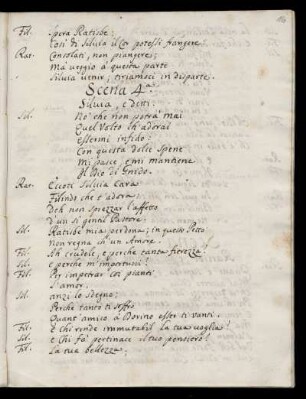 Fil. Spera Ratisbe:
Così di Silvia il Cor potessi frangere.
Rat. Consolati, non piangere;
Ma veggio à questa parte
Silvia venir; tiriamoci in disparte.
Scena 4.a
Silvia, e detti.
Sil. No' che non potrà mai
Quel Volto ch'adorai
essermi infido:
Con questa dolce Spene
Mi pasce, e mi mantiene
Il Dio di Gnido.
Rat. Ecco Silvia Cara
Filindo che t'adora;
Deh non sprezzar l'affetto
D'un sì gentil Pastore.
Sil. Ratisbe mia perdona; in questo Petto
Non regna ch'un Amore.
Fil. Ah crudele, e perche tanta fierezza?
Sil. e perche m'importuni?
Fil. Per impetrar coi pianti
L'amor.
Sil. anzi lo Sdegno;
Fil. Perche tanto ti
Sil. Quant'amico à Dorino esser ti vanti.
Fil. E chi rende immutabil la tua voglia?
Sil. e Chi fà pertinace il tuo pensiero?
Fil. La tua bellezza.